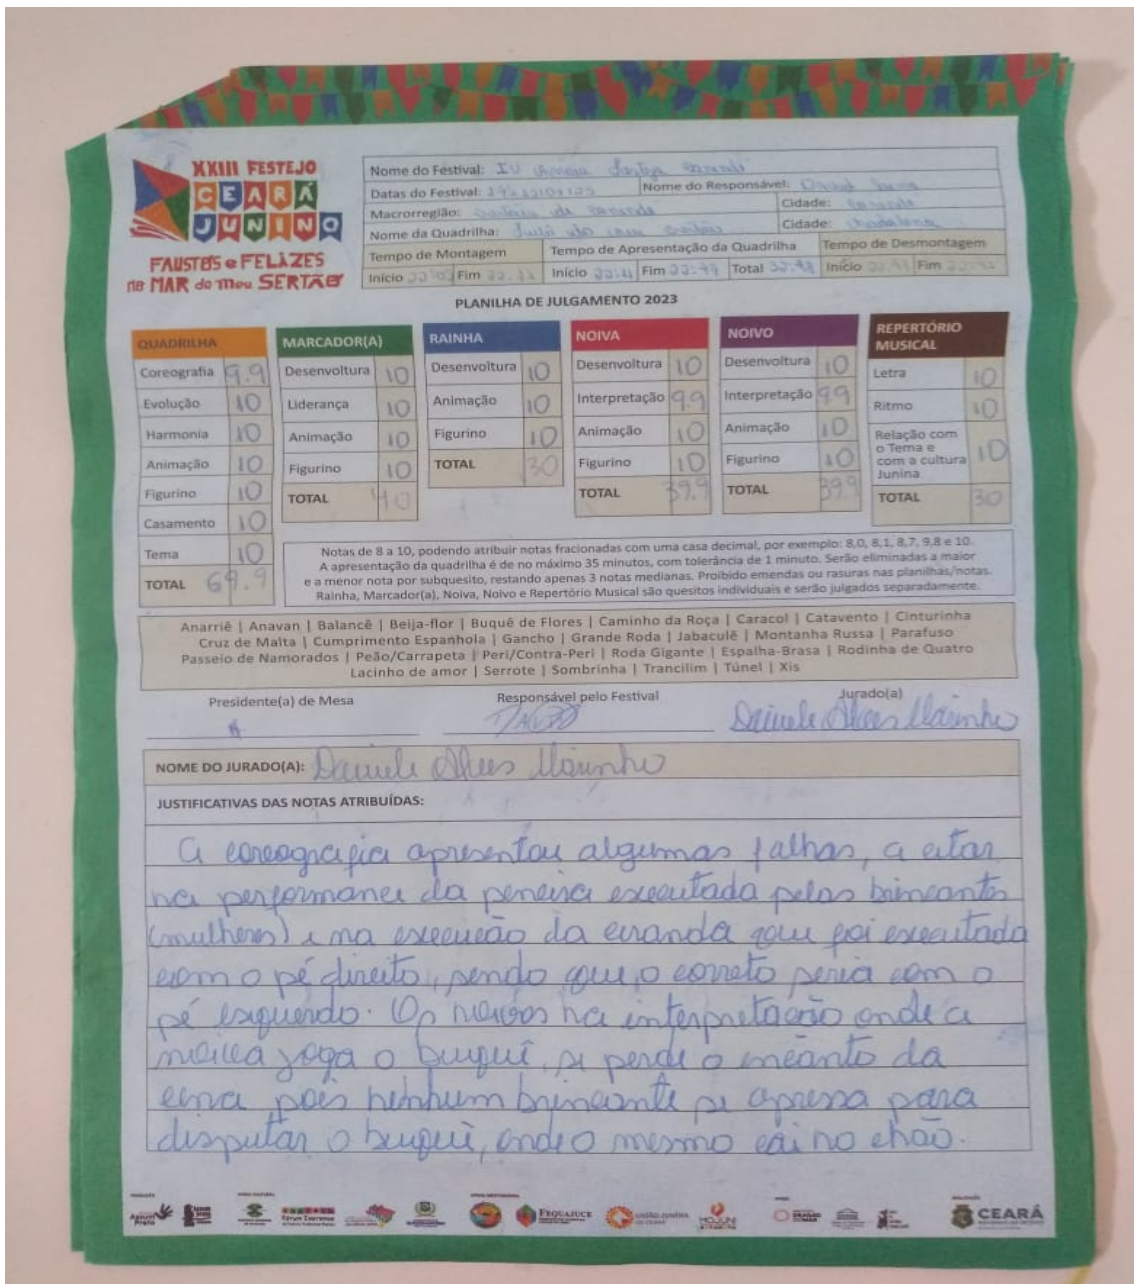 XXIII FESTEJO
CEARÁ
JUNINO
FAUSTOS e FELIZES
no MAR do meu SERTÃO
Nome do Festival: IV
Datas do Festival:
Nome do Responsável:
Macrorregião: Sertão de
Cidade:
Nome da Quadrilha:
Cidade: Madalena
Tempo de Montagem
Tempo de Apresentação da Quadrilha
Tempo de Desmontagem
Início Fim
Início Fim Total
Início Fim
PLANILHA DE JULGAMENTO 2023
QUADRILHA
Coreografia 9.9
Evolução 10
Harmonia 10
Animação 10
Figurino 10
Casamento 10
Tema 10
TOTAL 69.9
MARCADOR(A)
Desenvoltura 10
Liderança 10
Animação 10
Figurino 10
TOTAL 40
RAINHA
Desenvoltura 10
Animação 10
Figurino 10
TOTAL 30
NOIVA
Desenvoltura 10
Interpretação 9.9
Animação 10
Figurino 10
TOTAL 39.9
NOIVO
Desenvoltura 10
Interpretação 9.9
Animação 10
Figurino 10
TOTAL 39.9
REPERTÓRIO
MUSICAL
Letra 10
Ritmo 10
Relação com
o Tema e
com a cultura
Junina 10
TOTAL 30
Notas de 8 a 10, podendo atribuir notas fracionadas com uma casa decimal, por exemplo: 8,0, 8,1, 8,7, 9,8 e 10.
A apresentação da quadrilha é de no máximo 35 minutos, com tolerância de 1 minuto. Serão eliminadas a maior
e a menor nota por subquesito, restando apenas 3 notas medianas. Proibido emendas ou rasuras nas planilhas/notas.
Rainha, Marcador(a), Noiva, Noivo e Repertório Musical são quesitos individuais e serão julgados separadamente.
Anarriê | Anavan | Balancê | Beija-flor | Buquê de Flores | Caminho da Roça | Caracol | Catavento | Cinturinha
Cruz de Malta | Cumprimento Espanhola | Gancho | Grande Roda | Jabaculê | Montanha Russa | Parafuso
Passeio de Namorados | Peão/Carrapeta | Peri/Contra-Peri | Roda Gigante | Espalha-Brasa | Rodinha de Quatro
Lacinho de amor | Serrote | Sombrinha | Trancilim | Túnel | Xis
Presidente(a) de Mesa
Responsável pelo Festival
Jurado(a)
Daniele Alves Marinho
NOME DO JURADO(A): Daniele Alves Marinho
JUSTIFICATIVAS DAS NOTAS ATRIBUÍDAS:
A coreografia apresentou algumas falhas, a citar
na performance da peneira executada pelas brincantes
(mulheres) e na execução da ciranda que foi executada
com o pé direito, sendo que o correto seria com o
pé esquerdo. Os noivos na interpretação onde a
noiva joga o buquê, se perde o encanto da
cena pois nenhum brincante se apressa para
disputar o buquê, onde o mesmo cai no chão.
FEQUAJUCE
CEARÁ